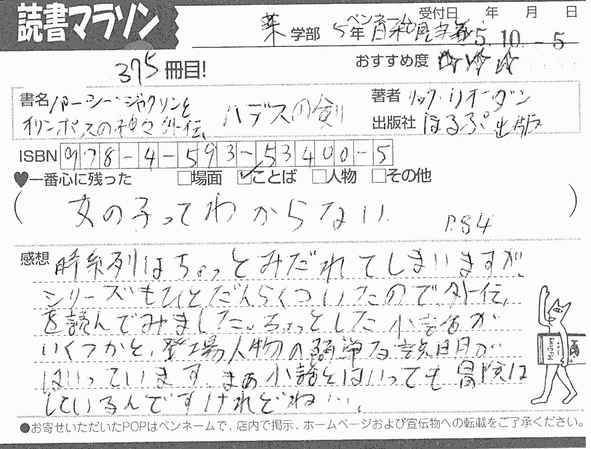 読書マラソン
薬 学部 5年 ペンネーム 受付日 年 月 日
5.10.-5
375冊目! おすすめ度 ☆☆☆
書名 パーシー・ジャクソンと
オリンポスの神々外伝 ハデスの剣
著者 リック・リオーダン
出版社 ほるぷ出版
ISBN 978-4-593-53400-5
♥一番心に残った □場面 ☑ことば □人物 □その他
(女の子ってわからない P.84)
感想 時系列はちょっとみだれてしまいますが、
シリーズもひとだんらくついたので、外伝
を読んでみました。ちょっとした小話が
いくつかと、登場人物の簡単な説明が
はいっています。まぁ小話とはいっても冒険は
しているんですけれどね…。
●お寄せいただいたPOPはペンネームで、店内で掲示、ホームページおよび宣伝物への転載をご了承ください。